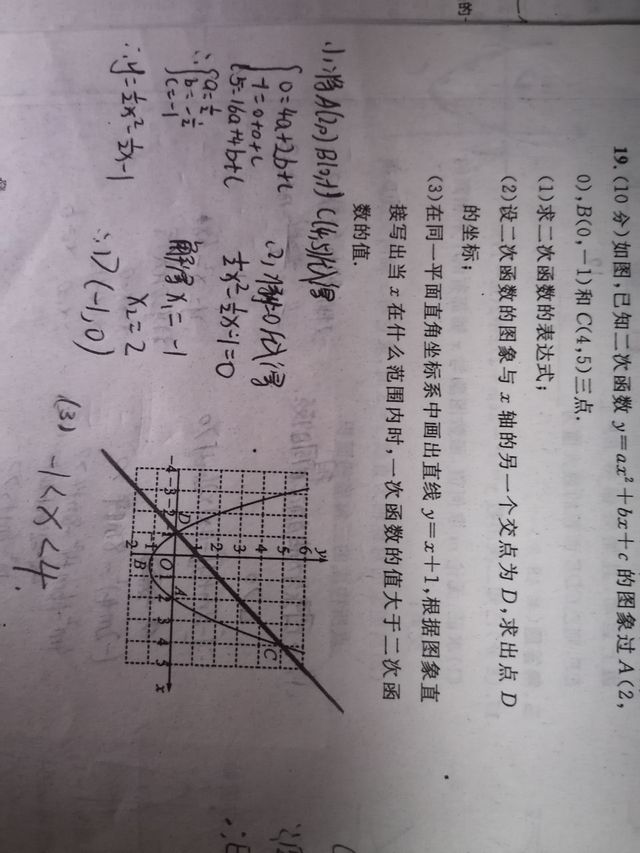 19. (10 分)如图,已知二次函数 y=ax²+bx+c 的图象过 A(2,
0),B(0,-1)和 C(4,5)三点.
(1)求二次函数的表达式;
(2)设二次函数的图象与 x 轴的另一个交点为 D,求出点 D
的坐标;
(3)在同一平面直角坐标系中画出直线 y=x+1,根据图象直
接写出当 x 在什么范围内时,一次函数的值大于二次函
数的值.
(1)将A(2,0) B(0,-1) C(4,5)代入得
0=4a+2b+c
-1=0+0+c
5=16a+4b+c
∴ a=½
b=-½
c=-1
∴y=½x²-½x-1
(2)将y=0代入得
½x²-½x-1=0
解得 x₁=-1
x₂=2
∴D(-1,0)
(3) -1<x<4.
y
6
5
4
3
2
1
-4 -3 -2 -1 O 2 3 4 5 x
-1
2
D
A
B
C
的